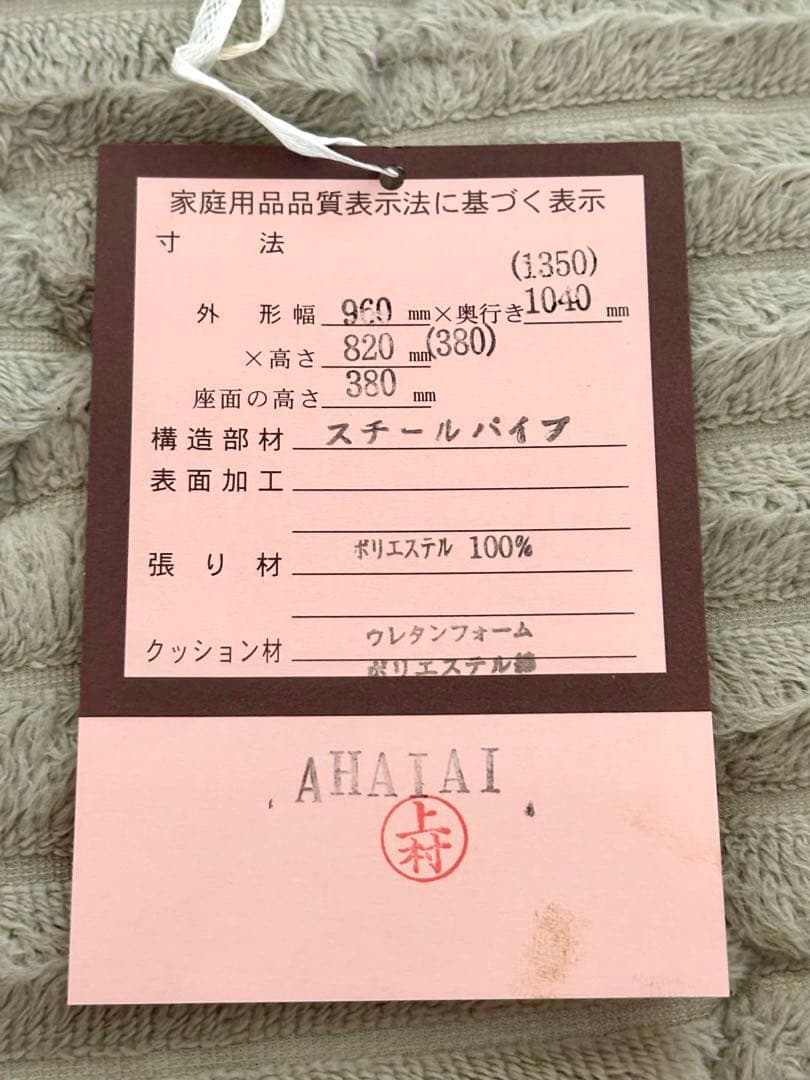 家庭用品品質表示法に基づく表示
寸法
(1350)
外形幅 960 mm×奥行き 1040 mm
×高さ 820 mm (380)
座面の高さ 380 mm
構造部材 スチールパイプ
表面加工
張り材 ポリエステル 100%
クッション材 ウレタンフォーム
ポリエステル綿
AHATAI
上村